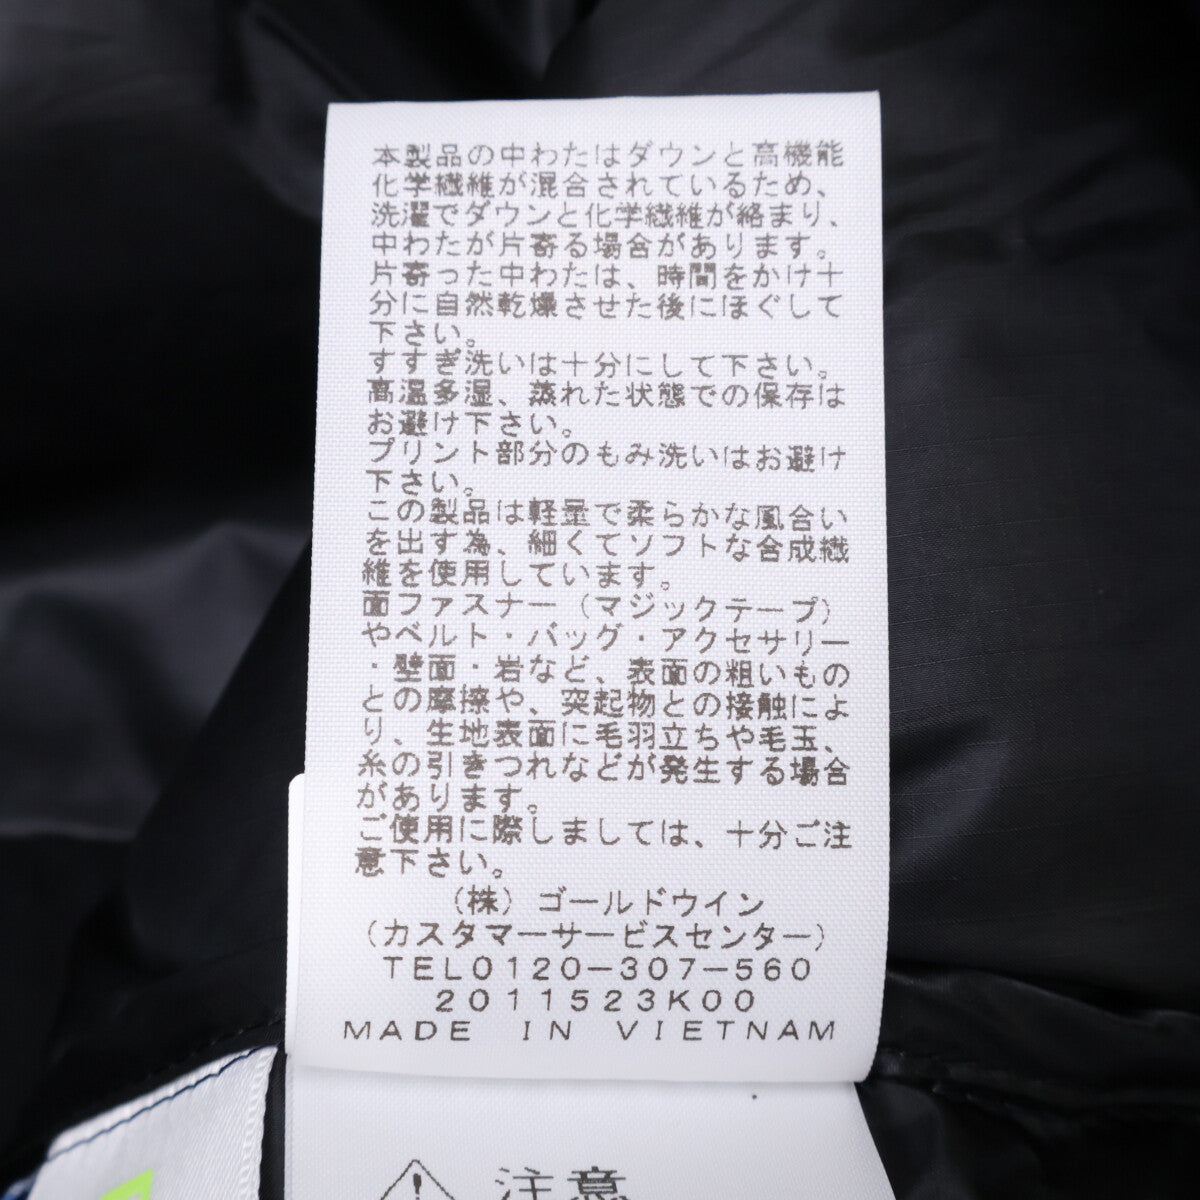 本製品の中わたはダウンと高機能
化学繊維が混合されているため、
洗濯でダウンと化学繊維が絡まり、
中わたが片寄る場合があります。
片寄った中わたは、時間をかけ十
分に自然乾燥させた後にほぐして
下さい。
すすぎ洗いは十分にして下さい。
高温多湿、蒸れた状態での保存は
お避け下さい。
プリント部分のもみ洗いはお避け
下さい。
この製品は軽量で柔らかな風合い
を出す為、細くてソフトな合成繊
維を使用しています。
面ファスナー(マジックテープ)
やベルト・バッグ・アクセサリー
・壁面・岩など、表面の粗いもの
との摩擦や、突起物との接触によ
り、生地表面に毛羽立ちや毛玉、
糸の引きつれなどが発生する場合
があります。
ご使用に際しましては、十分ご注
意下さい。
(株)ゴールドウイン
(カスタマーサービスセンター)
TEL0120-307-560
2011523K00
MADE IN VIETNAM
注意